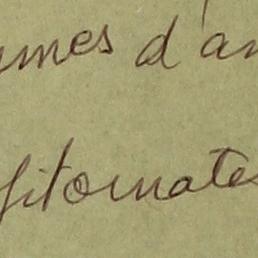 umes d'an
fitomates